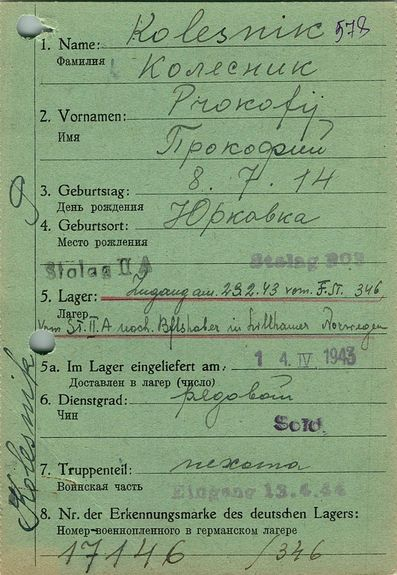 Kolesnik 578
1. Name:
Фамилия
Колесник
Prokofij
2. Vornamen:
Имя
Прокофий
3. Geburtstag: 8. 7. 14
День рождения
4. Geburtsort: Юрковка
Место рождения
Stalag II A Stalag 303
5. Lager: Zugang am 29.2.43 vom F.St. 346,
Лагерь
vom St. II A nach Bftshaber in Lillhamer Norwegen
5a. Im Lager eingeliefert am 14. IV 1943
Доставлен в лагер (число)
6. Dienstgrad: рядовой
Чин
Sold.
7. Truppenteil: пехота
Воинская часть
Eingang 13.4.44
8. Nr. der Erkennungsmarke des deutschen Lagers:
Номер военнопленного в германском лагере
17146 /346
Kolesnik